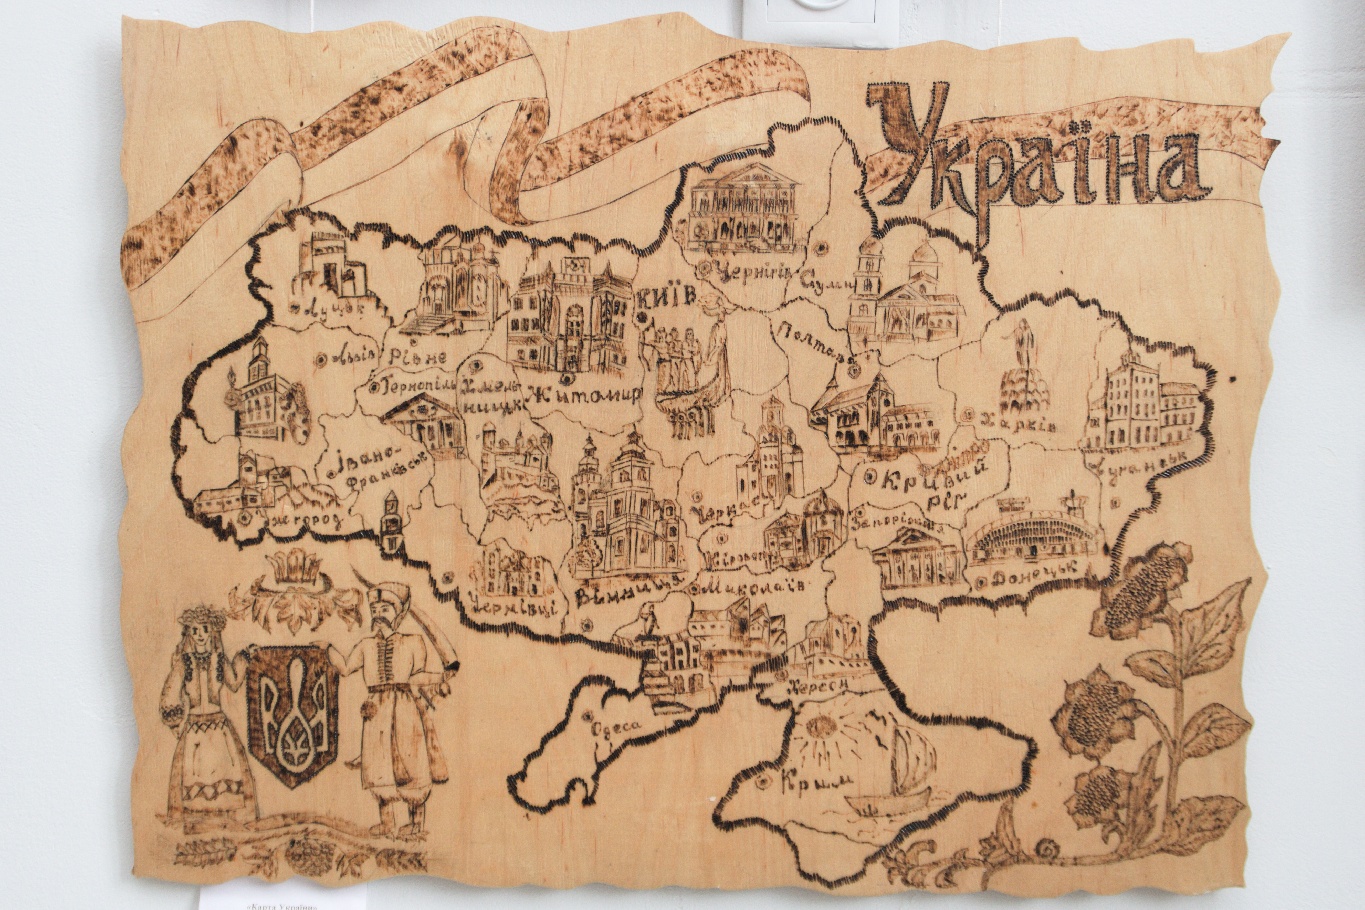 Україна
Чернігів
Суми
КИЇВ
Луцьк
Львів
Рівне
Полтава
Тернопіль
Хмель
ницьк
Житомир
Харків
Івано-
Франківськ
Луганськ
Кривий
ріг
Черкаси
Ужгород
Запоріжжя
Донецьк
Чернівці
Вінниця
Миколаїв
Херсон
Одеса
Крим
«Карта України»